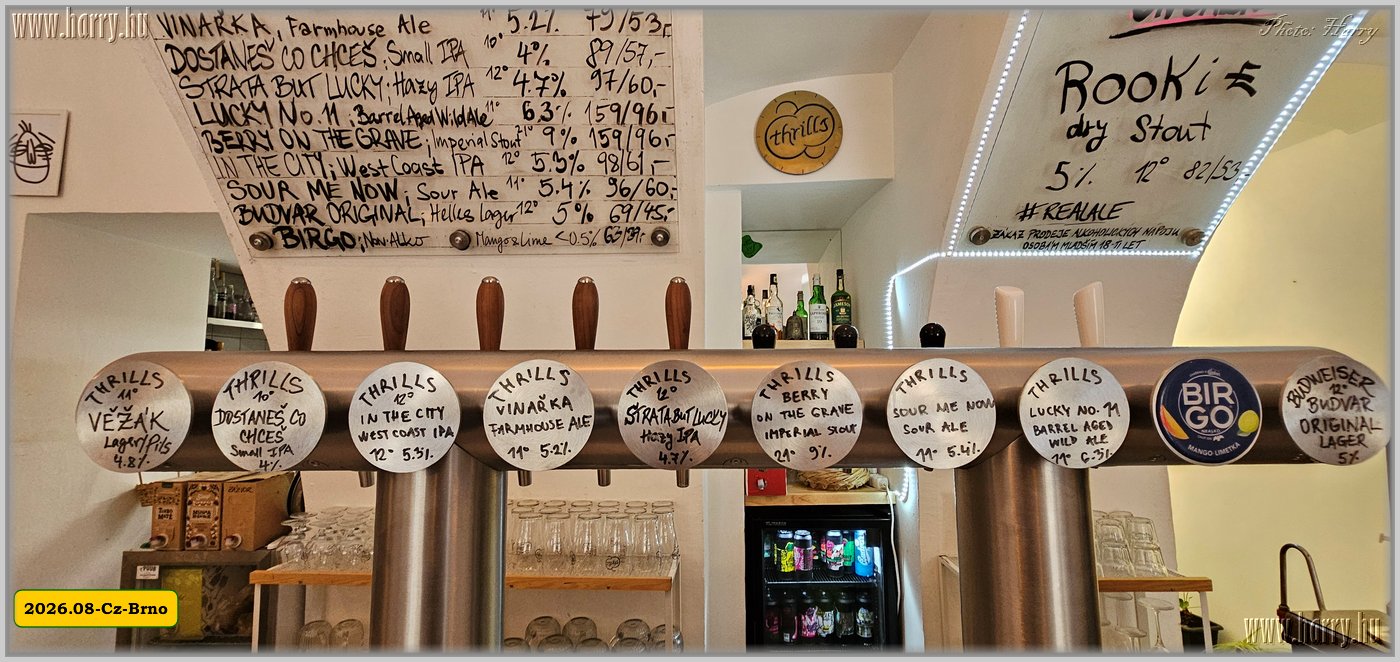 www.harry.hu
Photo: Harry
VINAŘKA, Farmhouse Ale 11° 5.2% 79/53,-
DOSTANEŠ CO CHCEŠ; Small IPA 10° 4% 89/57,-
STRATA BUT LUCKY; Hazy IPA 12° 4.7% 97/60,-
LUCKY No. 11; Barrel Aged Wild Ale 11° 6.3% 159/96,-
BERRY ON THE GRAVE; Imperial Stout 21° 9% 159/96,-
IN THE CITY; West Coast IPA 12° 5.3% 98/61,-
SOUR ME NOW; Sour Ale 11° 5.4% 96/60,-
BUDVAR ORIGINAL; Helles lager 12° 5% 69/45,-
BIRGO; Non-Alko Mango & Lime <0.5% 63/39,-
thrills
ROOKiE
dry Stout
5% 12° 82/53
#REALALE
ZÁKAZ PRODEJE ALKOHOLICKÝCH NÁPOJŮ
OSOBÁM MLADŠÍM 18-TI LET
THRILLS
11°
VĚŽÁK
Lager/Pils
4.8%
THRILLS
10°
DOSTANEŠ CO
CHCEŠ
Small IPA
4%
THRILLS
12°
IN THE CITY
WEST COAST IPA
12° 5.3%
THRILLS
VINAŘKA
FARMHOUSE ALE
11° 5.2%
THRILLS
12°
STRATA BUT LUCKY
Hazy IPA
4.7%
THRILLS
BERRY
ON THE GRAVE
IMPERIAL STOUT
21° 9%
THRILLS
SOUR ME NOW
SOUR ALE
11° 5.4%
THRILLS
LUCKY NO. 11
BARREL AGED
WILD ALE
11° 6.3%
BIR
GO
MANGO-LIMETKA
BUDWEISER
12°
BUDVAR
ORIGINAL
LAGER
5%
2026.08-Cz-Brno
www.harry.hu